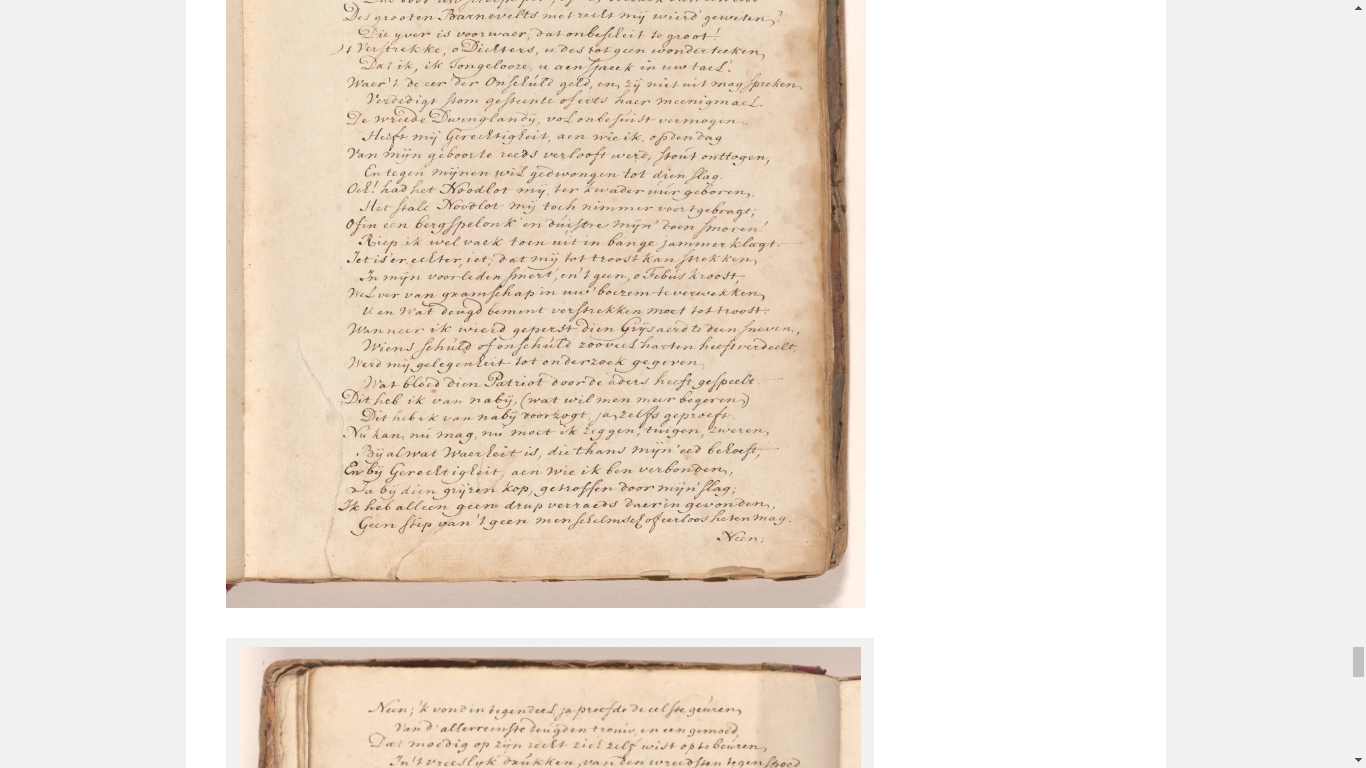 Des grooten Barnevelts met recht mij wierd geweten,
Die yver is voorwaer, dat onbescheit te groot!
Verstrekke, o Dichters, u des tot geen wonderteeken,
Dat ik, ik Tongelooze, u aenspreek in uw tael!
Waer't de eer der Onschúld geld, en, zij niet uit mag spreken,
Verdedigt stom gesteente of erts haer meenigmael.
De wreede Dwinglandij, vol onbesuist vermogen,
Heeft mij Gerechtigheit, aen wie ik, op den dag
Van mijn geboorte reeds verlooft werd, stout onttogen,
En tegen mijnen wil gedwongen tot dien slag.
Och! had het Noodlot mij, ter kwader uúr geboren,
Het fale Noodlot mij toch nimmer voortgebragt;
Of in een bergspelonk en dúistre mijn' doen smoren!
Riep ik wel vaek toen uit in bange jammerklagt.
Iet is'er, echter, iet, dat mij tot troost kan strekken,
In mijn voorleden smert, en't geen, o Febus kroost,
Wel ver van gramschap in uw' boezem te verwekken,
U en Wat deugd bemint verstrekken moet tot troost.
Wanneer ik wierd geperst dien Grijsaerd te doen sneven,
Wiens schúld of onschúld zooveel harten heeft verdeelt,
Werd mij gelegenheit tot onderzoek gegeven
Wat bloed dien Patriot door de aders heeft gespeelt.
Dit heb ik van nabij, (wat wil men meer begeren)
Dit heb ik van nabij doorzogt, ja, zelfs geproeft.
Nu kan, nú mag, nú moet ik zeggen, tuigen, zweren,
Bij al wat Waerheit is, die thans mijn' eed behoeft,
En bij Gerechtigheit, aen wie ik ben verbonden,
Ja bij dien grijzen kop, getroffen door mijn' slag;
Ik heb alleen geen drup verraeds daer in gevonden,
Geen stip van 't geen men schelmsch of eerloos heten mag.
Neen;
Neen; 'k vond in tegendeel, ja proefde de eelste geuren,
Van d' allerreinste deugden trouw, en een gemoed,
Dat moedig op zijn recht zich zelf wist op te beuren,
In 't vreeslyk drukken, van den wreedsten tegenspoed